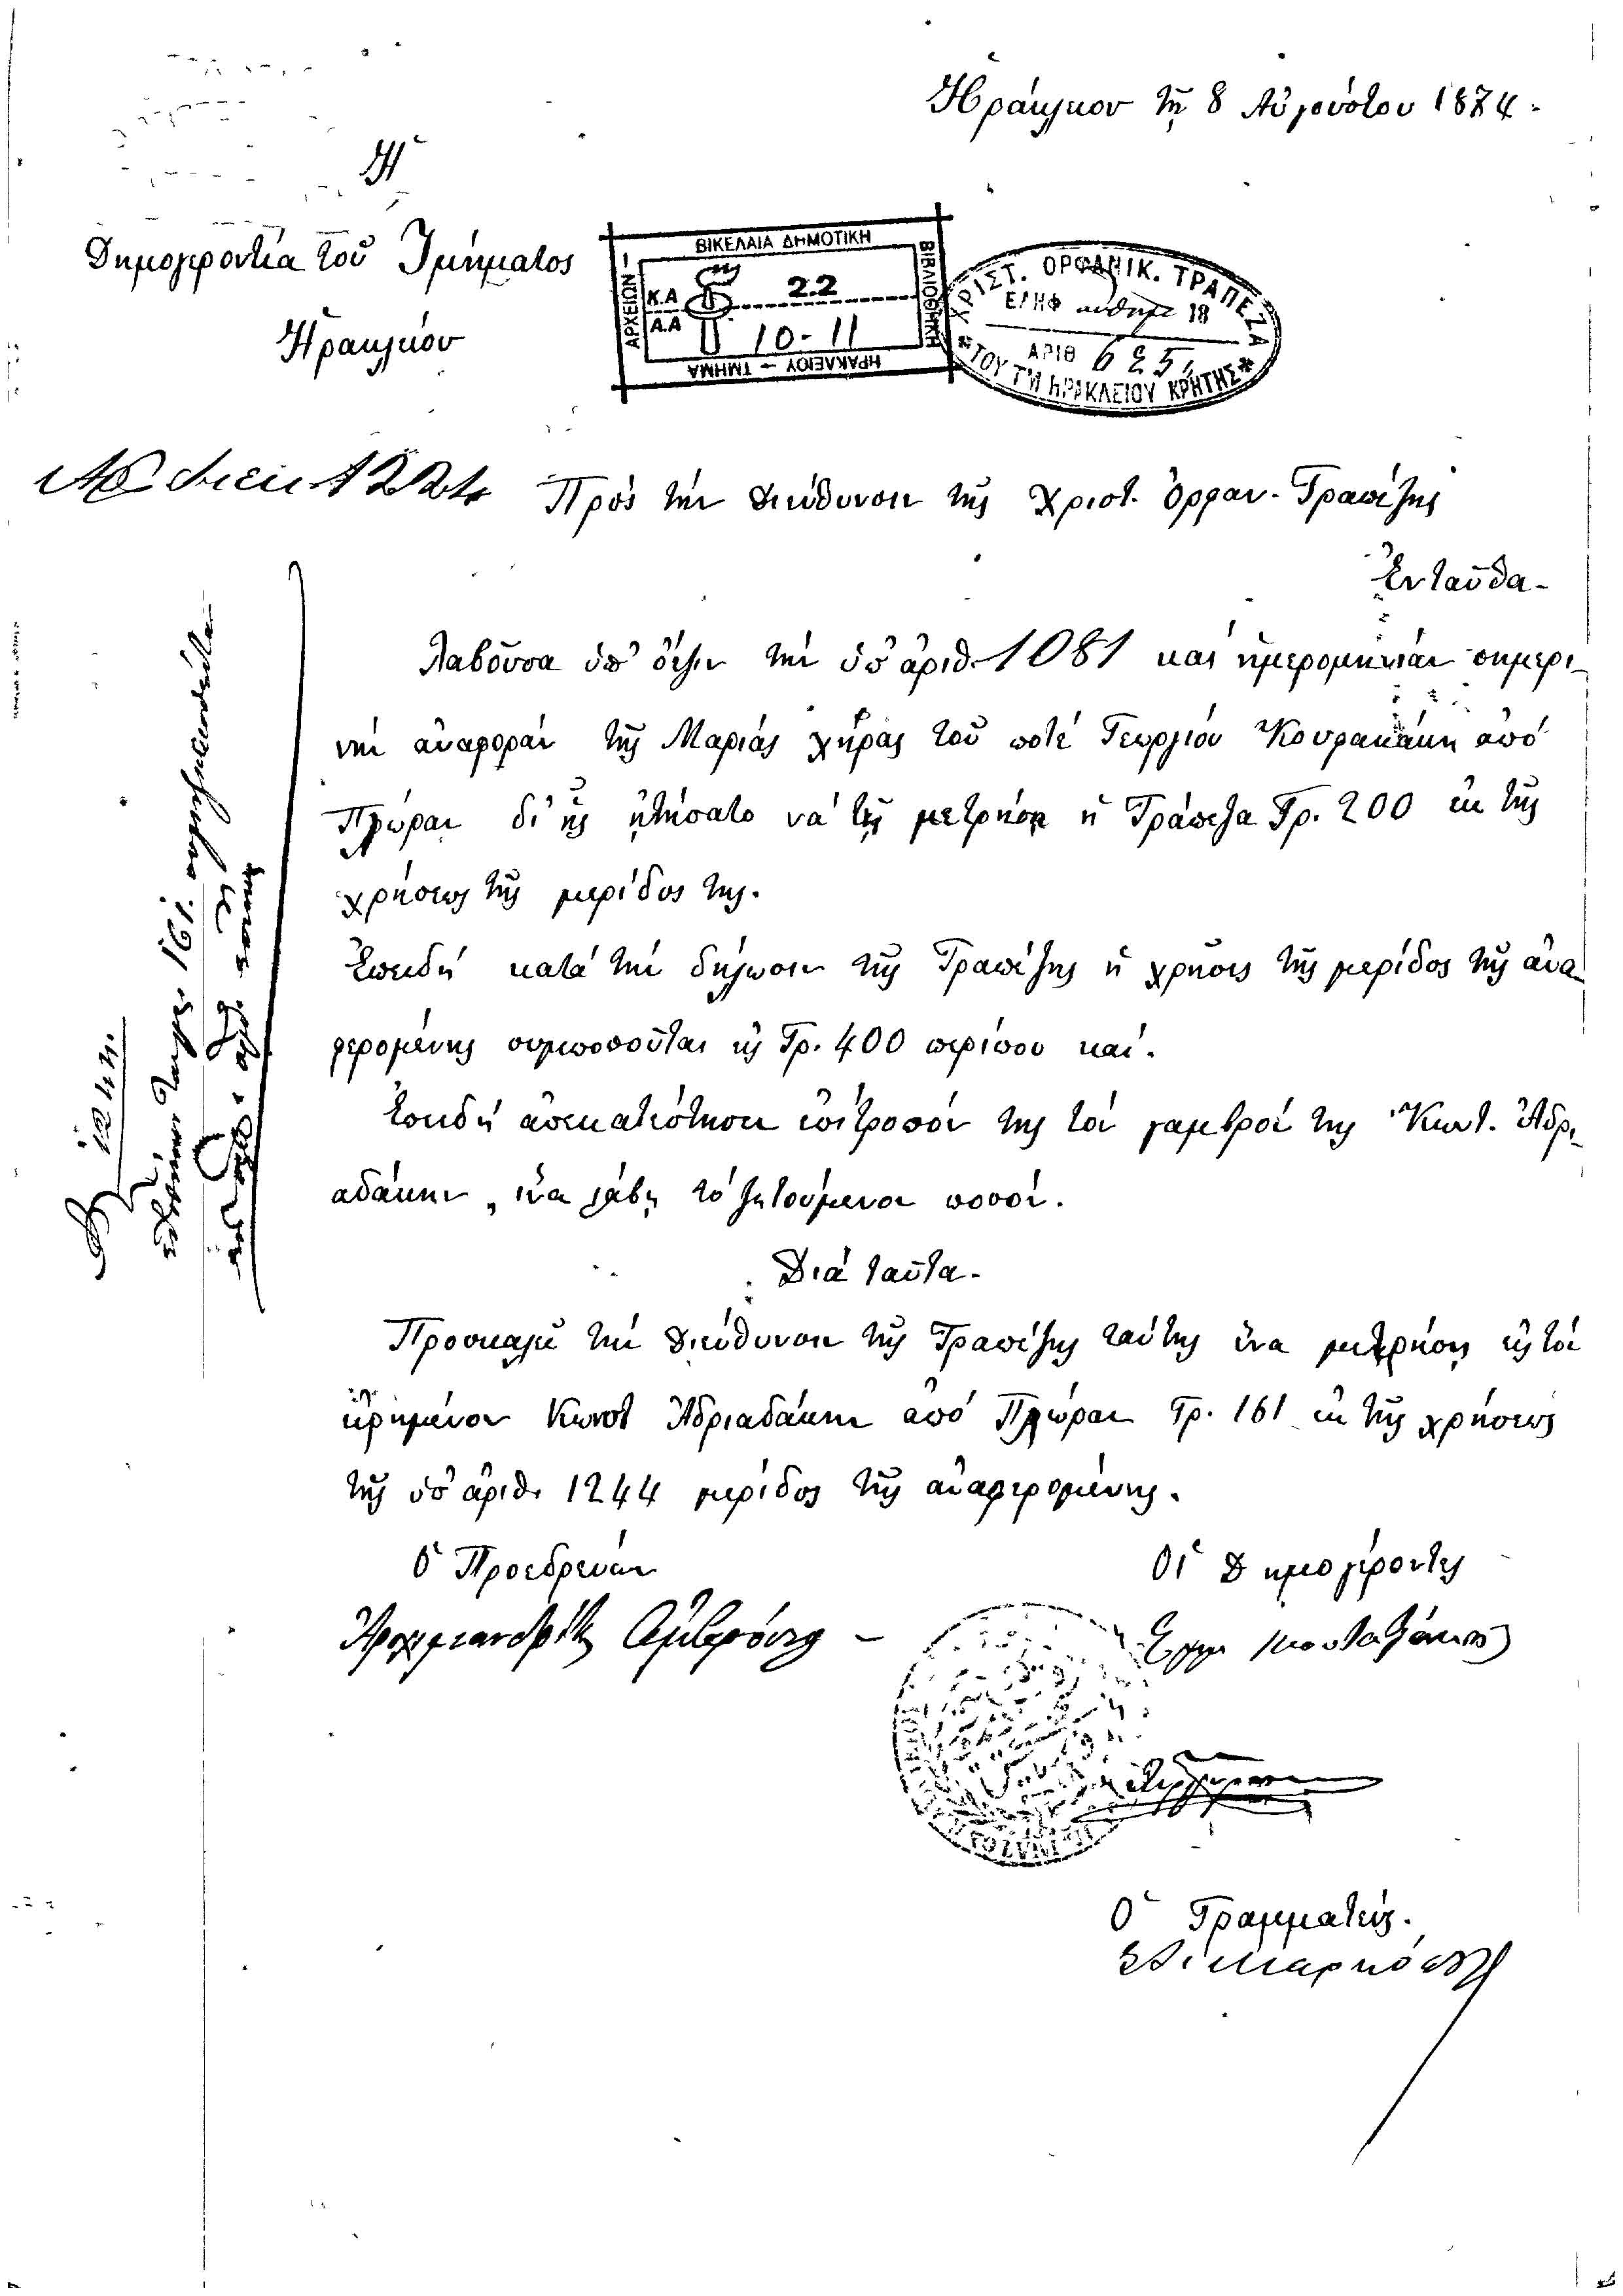 Ἡράκλειον τῇ 8 Αὐγούστου 1874.
Ἡ
Δημογεροντία τοῦ Τμήματος
Ἡρακλείου
ΒΙΚΕΛΑΙΑ ΔΗΜΟΤΙΚΗ
ΒΙΒΛΙΟΘΗΚΗ
ΗΡΑΚΛΕΙΟΥ – ΤΜΗΜΑ
ΑΡΧΕΙΩΝ –
Κ.Α 22
Α.Α 10-11
ΧΡΙΣΤ. ΟΡΦΑΝΙΚ. ΤΡΑΠΕΖΑ
ΕΛΗΦ αὐθημ 18
ΑΡΙΘ 625
*ΤΟΥ ΤΜ ΗΡΑΚΛΕΙΟΥ ΚΡΗΤΗΣ*
Πρὸς τὴν Διεύθυνσιν τῆς Χριστ. Ὀρφαν. Τραπέζης
Ἐνταῦθα-
Λαβοῦσα ὑπ' ὄψιν τὴν ὑπ' ἀριθ. 1081 καὶ ἡμερομηνίαν σημερι-
νὴν ἀναφορὰν τῆς Μαρίας χήρας τοῦ ποτὲ Γεωργίου Κουρακάκη ἀπὸ
Πλώραν δι' ἧς ᾐτήσατο νὰ τῇ μετρήσῃ ἡ Τράπεζα Γρ. 200 ἐκ τῆς
χρήσεως τῆς μερίδος της.
Ἐπειδὴ κατὰ τὴν δήλωσιν τῆς Τραπέζης ἡ χρῆσις τῆς μερίδος τῆς ἀνα-
φερομένης συμποσοῦται εἰς Γρ. 400 περίπου καὶ.
Ἐπειδὴ ἀπεκατέστησεν ἐπίτροπόν της τὸν γαμβρόν της Κωνστ. Ἀδρι-
αδάκην, ἵνα λάβῃ τὸ ζητούμενον ποσόν.
Διὰ ταῦτα-
Προσκαλεῖ τὴν Διεύθυνσιν τῆς Τραπέζης ταύτης ἵνα μετρήσῃ εἰς τὸν
εἰρημένον Κωνστ Ἀδριαδάκην ἀπὸ Πλώραν Γρ. 161 ἐκ τῆς χρήσεως
τῆς ὑπ' ἀριθ. 1244 μερίδος τῆς ἀναφερομένης.
Ὁ Προεδρεύων
Οἱ Δημογέροντες
Ἀρχιμανδρίτης Ἀμβρόσιος
Ὁ Γραμματεύς.
1244
161